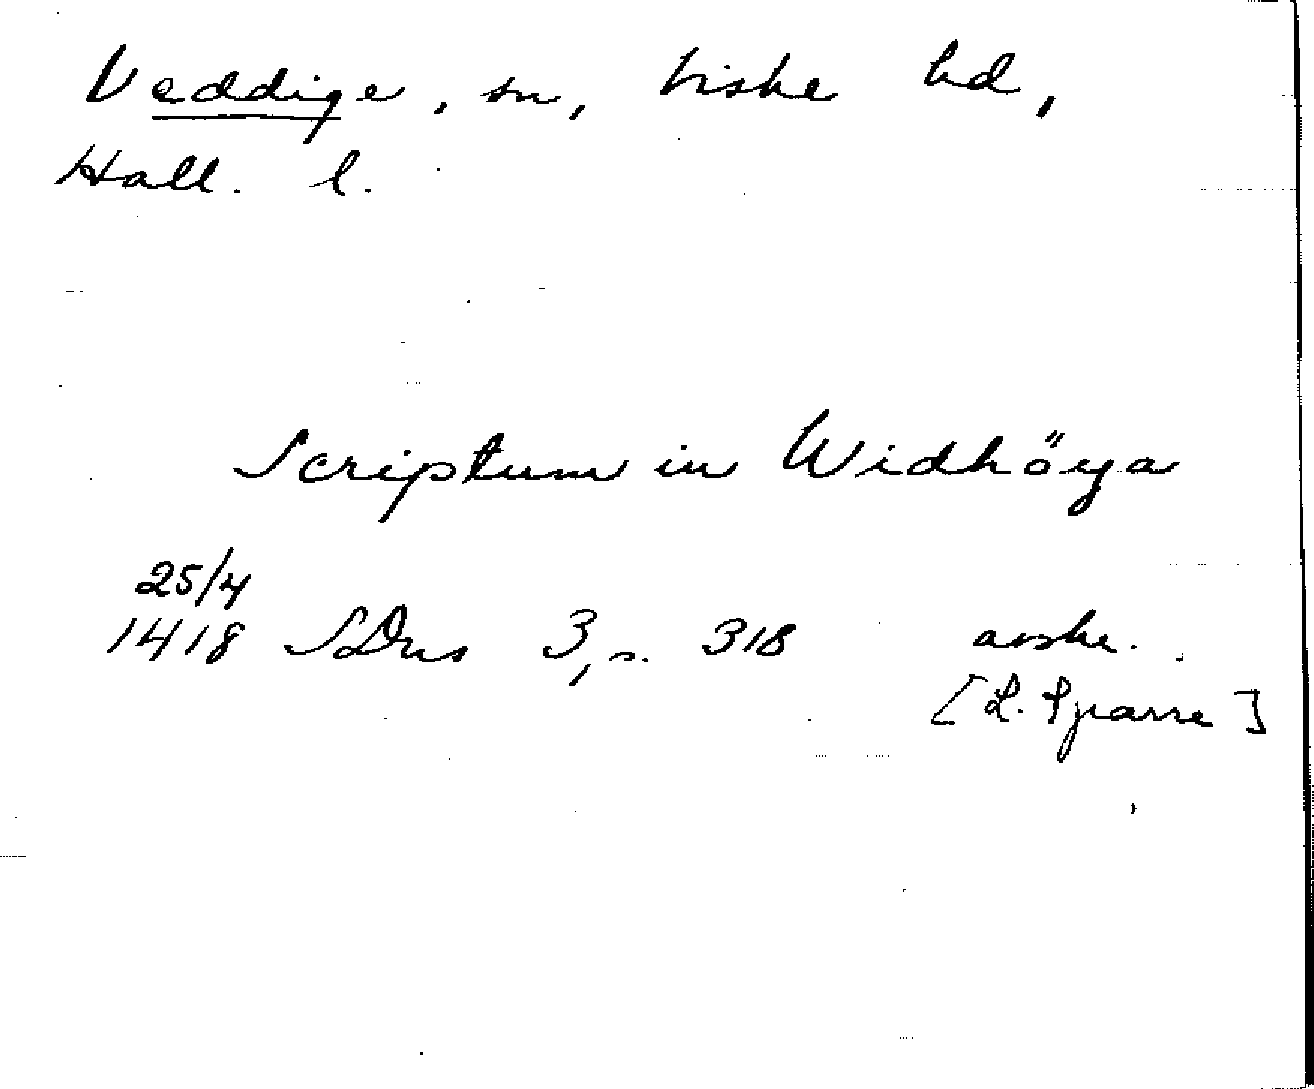 Veddige, sn, Viske hd,
Hall. l.
Scriptum in Widhöya
25/4
1418 SDns 3, s. 318 avskr.
[L. Sparre]